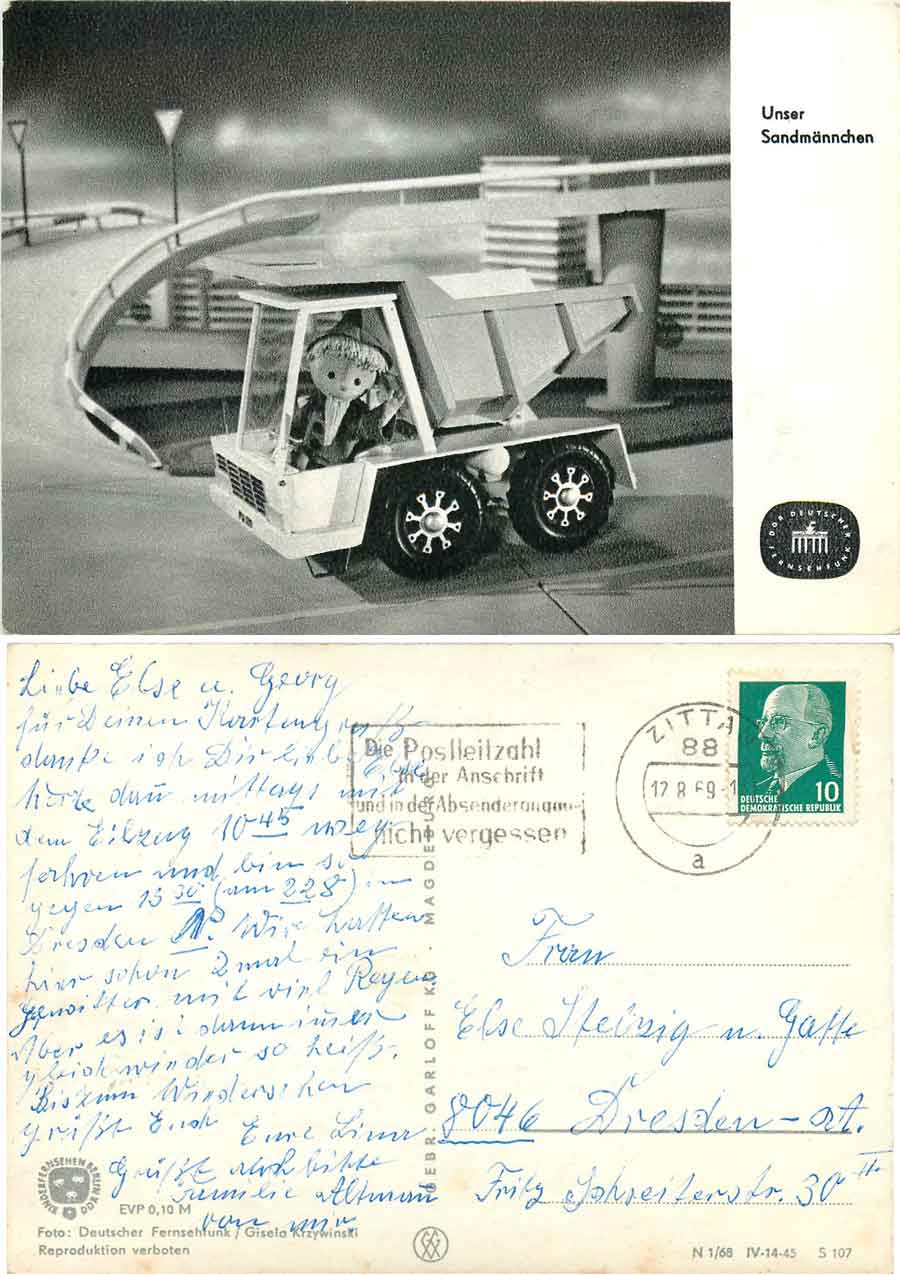 Unser
Sandmännchen
DDR DEUTSCHER FERNSEHFUNK
Liebe Else u. Georg
für Deinen Kartengruß
danke ich Dir liebe Else
dann mittags mit
dem Eilzug 10 45 weg
fahren und bin so
gegen 13 30 (am 22 8) in
Dresden N. Wir hatten
hier schon 2 mal ein
Gewitter mit viel Regen
Aber es ist dann imer
gleich wieder so heiß.
Bis zum Wiedersehen
grüßt Euch
Eure Lina
Grüßt auch bitte
Familie Altman
von mir
KINDERFERNSEHEN BERLIN DDR
EVP 0,10 M
Foto: Deutscher Fernsehfunk / Gisela Krzywinski
Reproduktion verboten
GEBR. GARLOFF K.G. MAGDEBURG
Die Postleitzahl
in der Anschrift
und in der Absenderangabe
nicht vergessen
ZITTAU
88
12.8.69-1
a
10
DEUTSCHE
DEMOKRATISCHE REPUBLIK
Frau
Else Stelzig u. Gatte
8046 Dresden-
Fritz Schreiterstr. 30 II.
N 1/68 IV-14-45 S 107